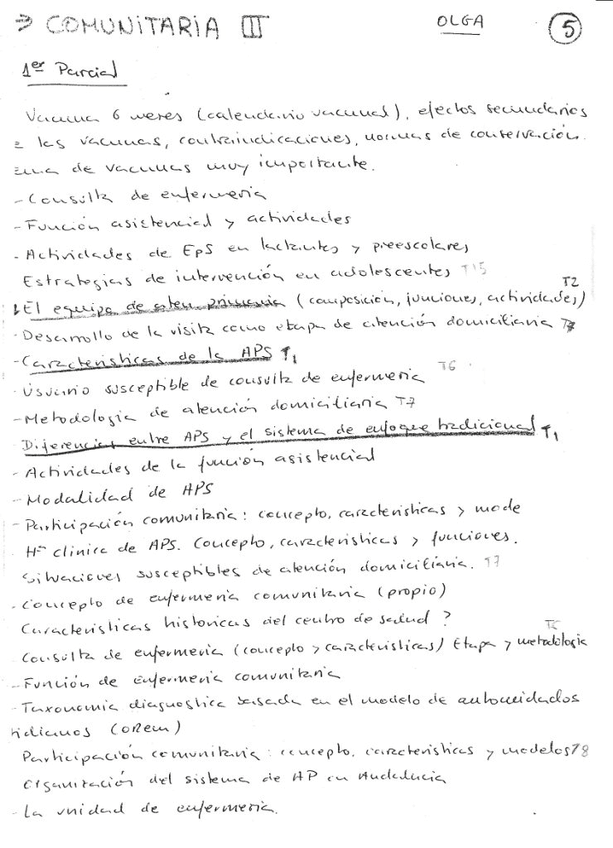 ⇒ COMUNITARIA III OLGA 5
1er Parcial
Vacuna 6 meses (calendario vacunal), efectos secundarios
las vacunas, contraindicaciones, normas de conservación.
de vacunas muy importante.
- Consulta de enfermería
- Función asistencial y actividades
- Actividades de EpS en lactantes y preescolares
Estrategias de intervención en adolescentes T15
El equipo de aten. primaria (composición, funciones, actividades) T2
- Desarrollo de la visita como etapa de atención domiciliaria T7
- Características de la APS T1
- Usuario susceptible de consulta de enfermería T6
- Metodología de atención domiciliaria T7
- Diferencias entre APS y el sistema de enfoque tradicional T1
- Actividades de la función asistencial
- Modalidad de APS
- Participación comunitaria: concepto, características y mode
Hª clínica de APS. Concepto, características y funciones.
Situaciones susceptibles de atención domiciliaria. T7
- Concepto de enfermería comunitaria (propio)
Características históricas del centro de salud?
Consulta de enfermería (concepto y características) Etapa y metodología T6
- Función de enfermería comunitaria
- Taxonomía diagnostica basada en el modelo de autocuidados
(Orem)
Participación comunitaria: concepto, características y modelos T8
Organización del sistema de AP en Andalucía
- La unidad de enfermería.